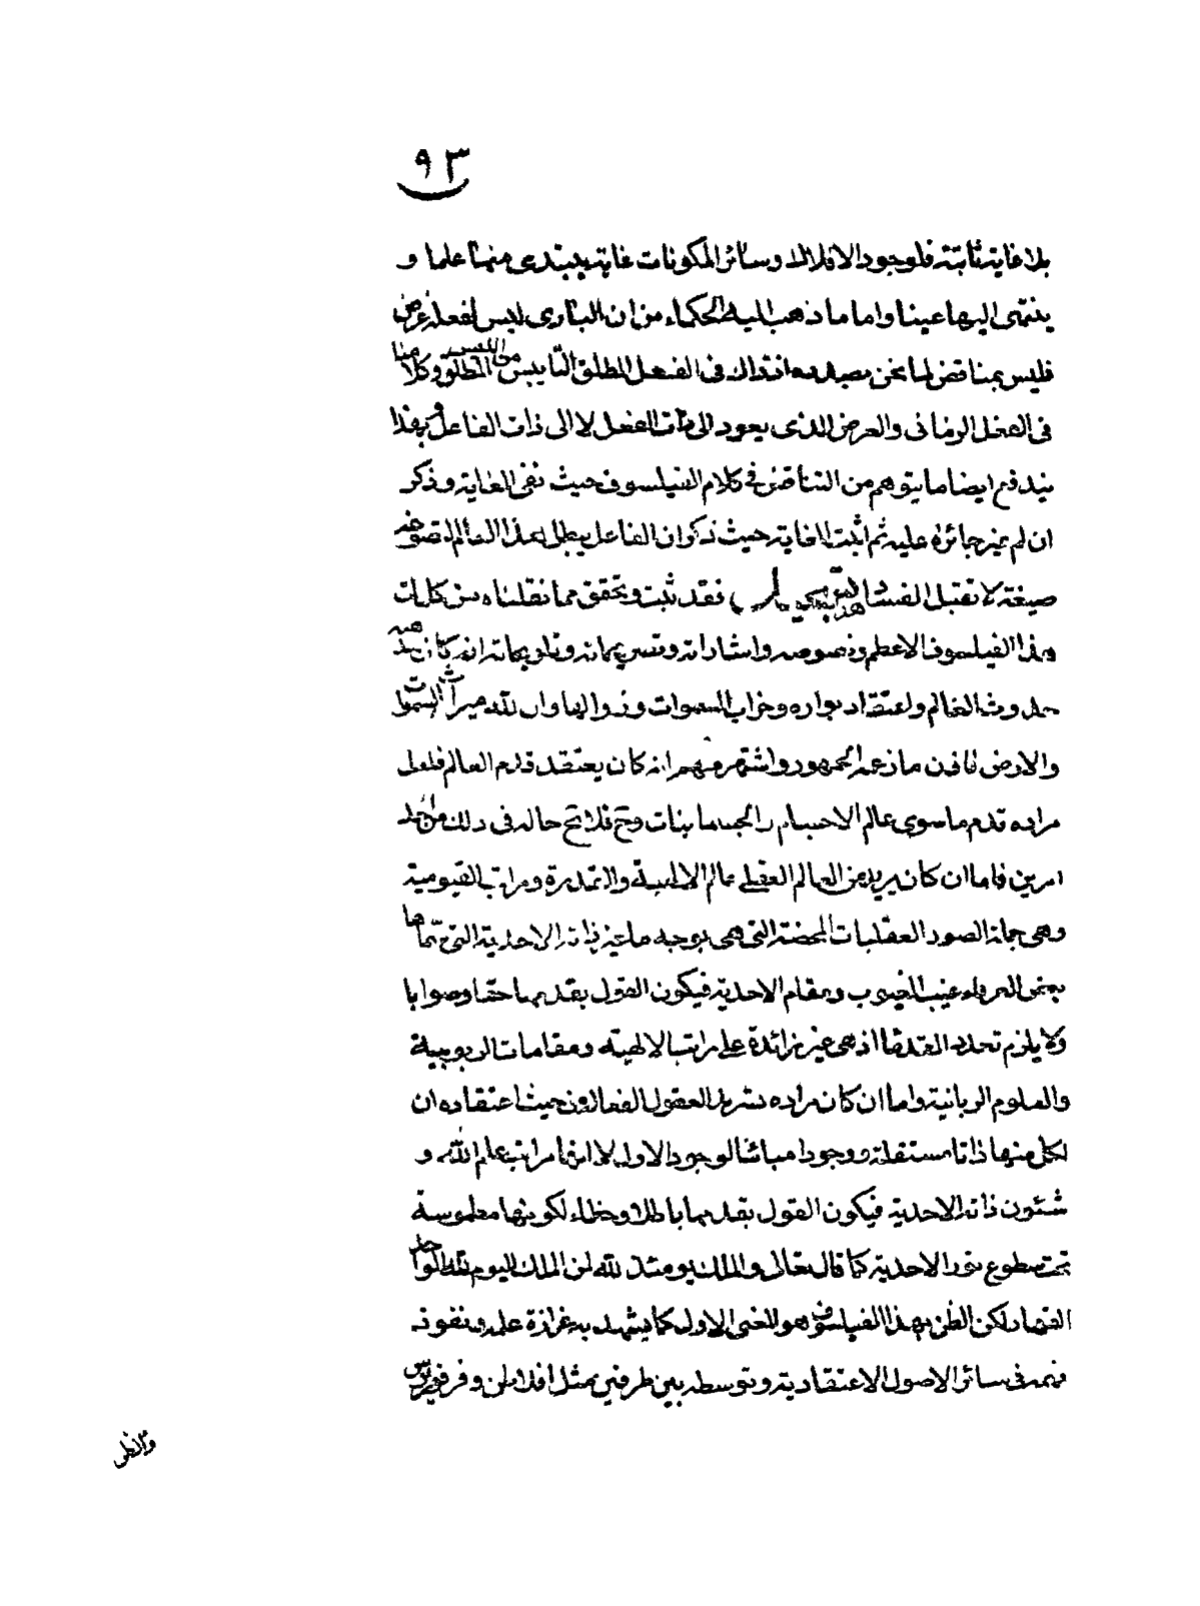 ٩٣
بلا غاية ثابتة فلوجود الافلاك وسائر المكونات غاية يبتدى منها علما و
ينتهى اليها عينا واما ما ذهب اليه الحكماء من ان البارى ليس لفعله غرض
فليس بمناقض لما نحن بصدده اذ ذاك فى الفعل المطلق التاييس من الليس المطلق وكلامنا
فى الفعل الزمانى والغرض الذى يعود الى ذات الفعل لا الى ذات الفاعل وبهذا
يندفع ايضا ما يتوهم من التناقض فى كلام الفيلسوف حيث نفى الغاية وذكر
ان لم غير جائزة عليه ثم اثبت الغاية حيث ذكر ان الفاعل يبطل هذا العالم لتصوغه
صيغة لا تقبل الفساد فقد ثبت وتحقق مما نقلناه من كلمات
هذا الفيلسوف الاعظم ونصوصه واشاراته وتصريحاته وتلويحاته انه كان مذهبه
حدوث العالم واعتقاد بواره وخراب السموات وزوالها وان لله ميراث السموات
والارض فاذن ما زعمه الجمهور واشتهر منهم انه كان يعتقد قدم العالم فلعل
مراده قدم ما سوى عالم الاجسام والجسمانيات وح فلا يخ حاله فى ذلك من احد
امرين فاما ان كان يريد من العالم العقلى عالم الالهية والقدرة ومراتب القيومية
وهى جملة الصور العقليات المحضة التى هى بوجه ما عين ذاته الاحدية التى سماها
بعض العرفاء غيب الغيوب ومقام الاحدية فيكون القول بقدمها حقا وصوابا
ولا يلزم تعدد القدما اذ هى غير زائدة على مراتب الالهية ومقامات الربوبية
والعلوم الربانية واما ان كان مراده العقول الفعالة من حيث اعتقاده ان
لكل منها ذاتا مستقلة ووجودا مباينا لوجود الاول لا انها مراتب علم الله و
شئون ذاته الاحدية فيكون القول بقدمها باطلا وخطاء لكونها مطموسة
تحت سطوع نور الاحدية كما قال تعالى والملك يومئذ لله لمن الملك اليوم لله الواحد
القهار لكن الظن بهذا الفيلسوف هو المعنى الاول كما يشهد به غزارة علمه ونفوذ
فهمه فى سائر الاصول الاعتقادية وتوسطه بين طرفين مثل افلاطن وفرفوريوس
والنظر